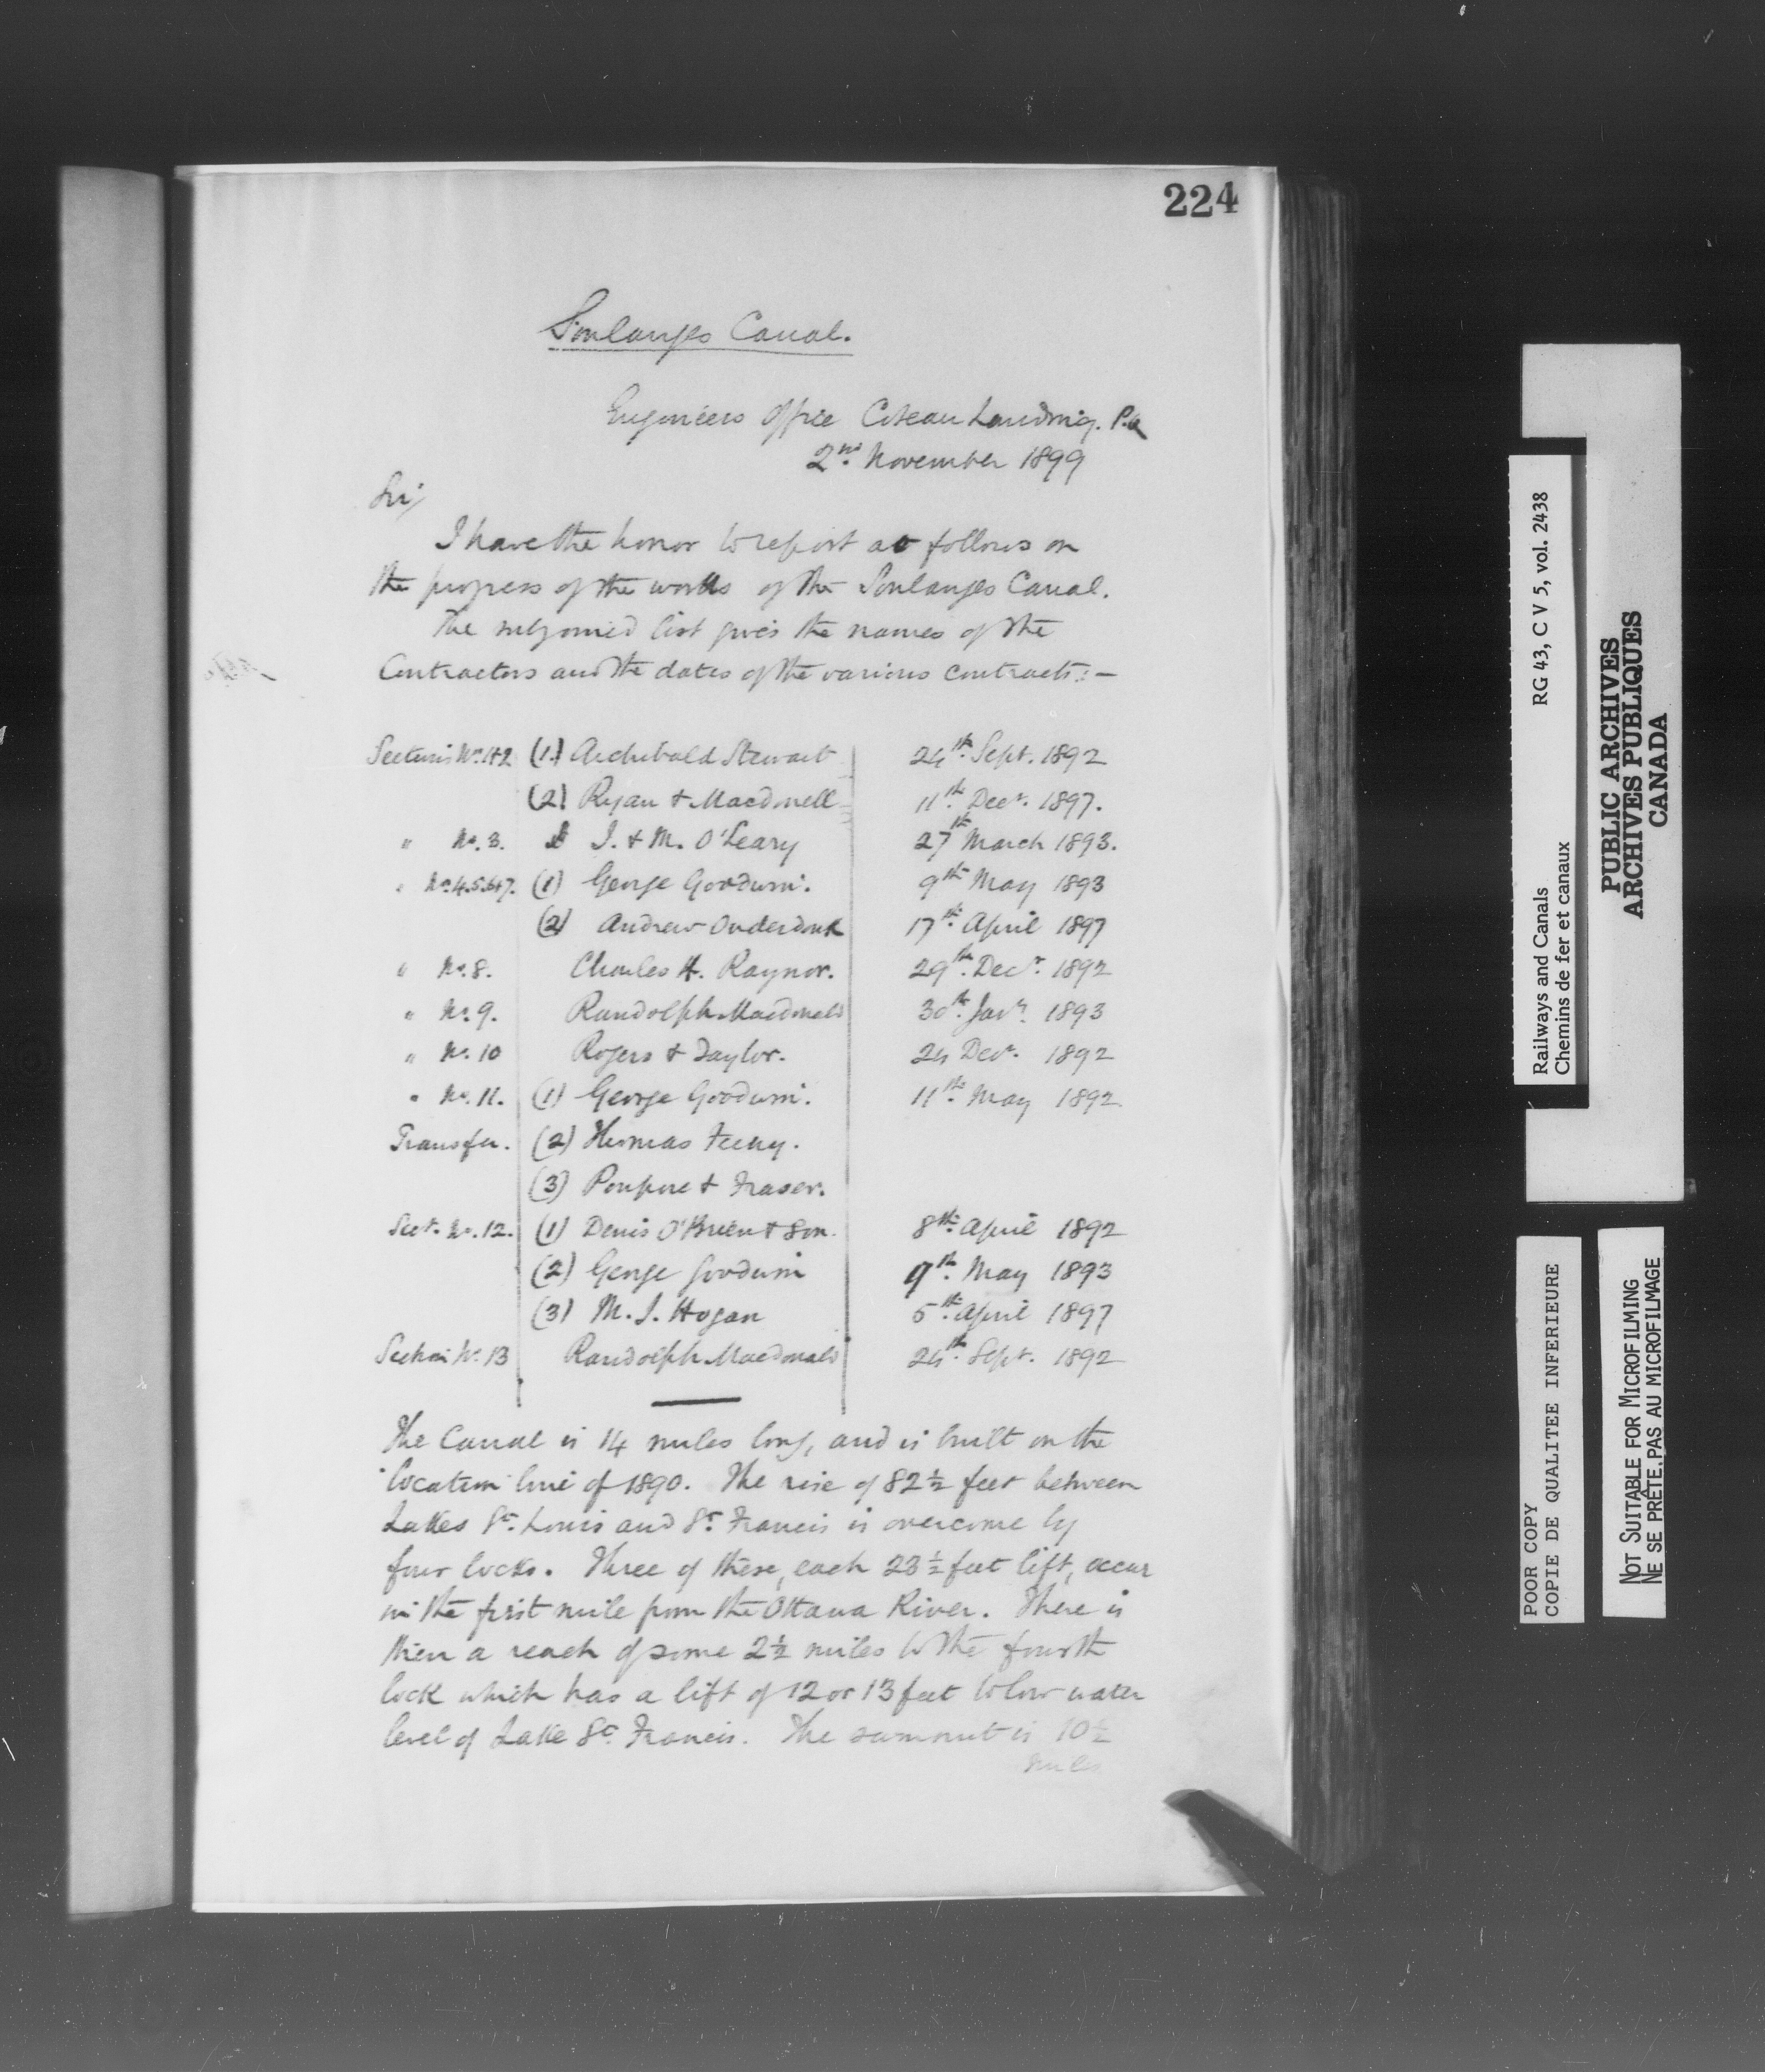 224
Soulanges Canal.
Engineers Office Coteau Landing. P.Q
2nd November 1899
Sir,
I have the honor to report as follows on
the progress of the works of the Soulanges Canal.
The subjoined list gives the names of the
Contractors and the dates of the various contracts:—
Sections No. 1+2 (1.) Archibald Stewart 24th Sept. 1892
(2) Ryan + Macdonell 11th Decr. 1897.
" No. 3. J. + M. O'Leary 27th March 1893.
" No. 4.5.6+7. (1) George Goodwin. 9th May 1893
(2) Andrew Onderdonk 17th April 1897
" No. 8. Charles H. Raynor. 29th Decr. 1892
" No. 9. Randolph Macdonald 30th Jany. 1893
" No. 10 Rogers + Taylor. 24 Decr. 1892
" No. 11. (1) George Goodwin. 11th May 1892
Transfer. (2) Thomas Feeny.
(3) Poupore + Fraser.
Sect. No. 12. (1) Denis O'Brien + Son. 8th April 1892
(2) George Goodwin 9th May 1893
(3) M. J. Hogan 5th April 1897
Section No. 13 Randolph Macdonald 24th Sept. 1892
The Canal is 14 miles long, and is built on the
location line of 1890. The rise of 82 ½ feet between
Lakes St. Louis and St. Francis is overcome by
four locks. Three of these, each 23 ½ feet lift, occur
in the first mile from the Ottawa River. There is
then a reach of some 2 ½ miles to the fourth
lock which has a lift of 12 or 13 feet to low water
level of Lake St. Francis. The summit is 10 ½
miles
Railways and Canals RG 43, C V 5, vol. 2438
Chemins de fer et canaux
PUBLIC ARCHIVES
ARCHIVES PUBLIQUES
CANADA
POOR COPY
COPIE DE QUALITEE INFERIEURE
NOT SUITABLE FOR MICROFILMING
NE SE PRÊTE PAS AU MICROFILMAGE